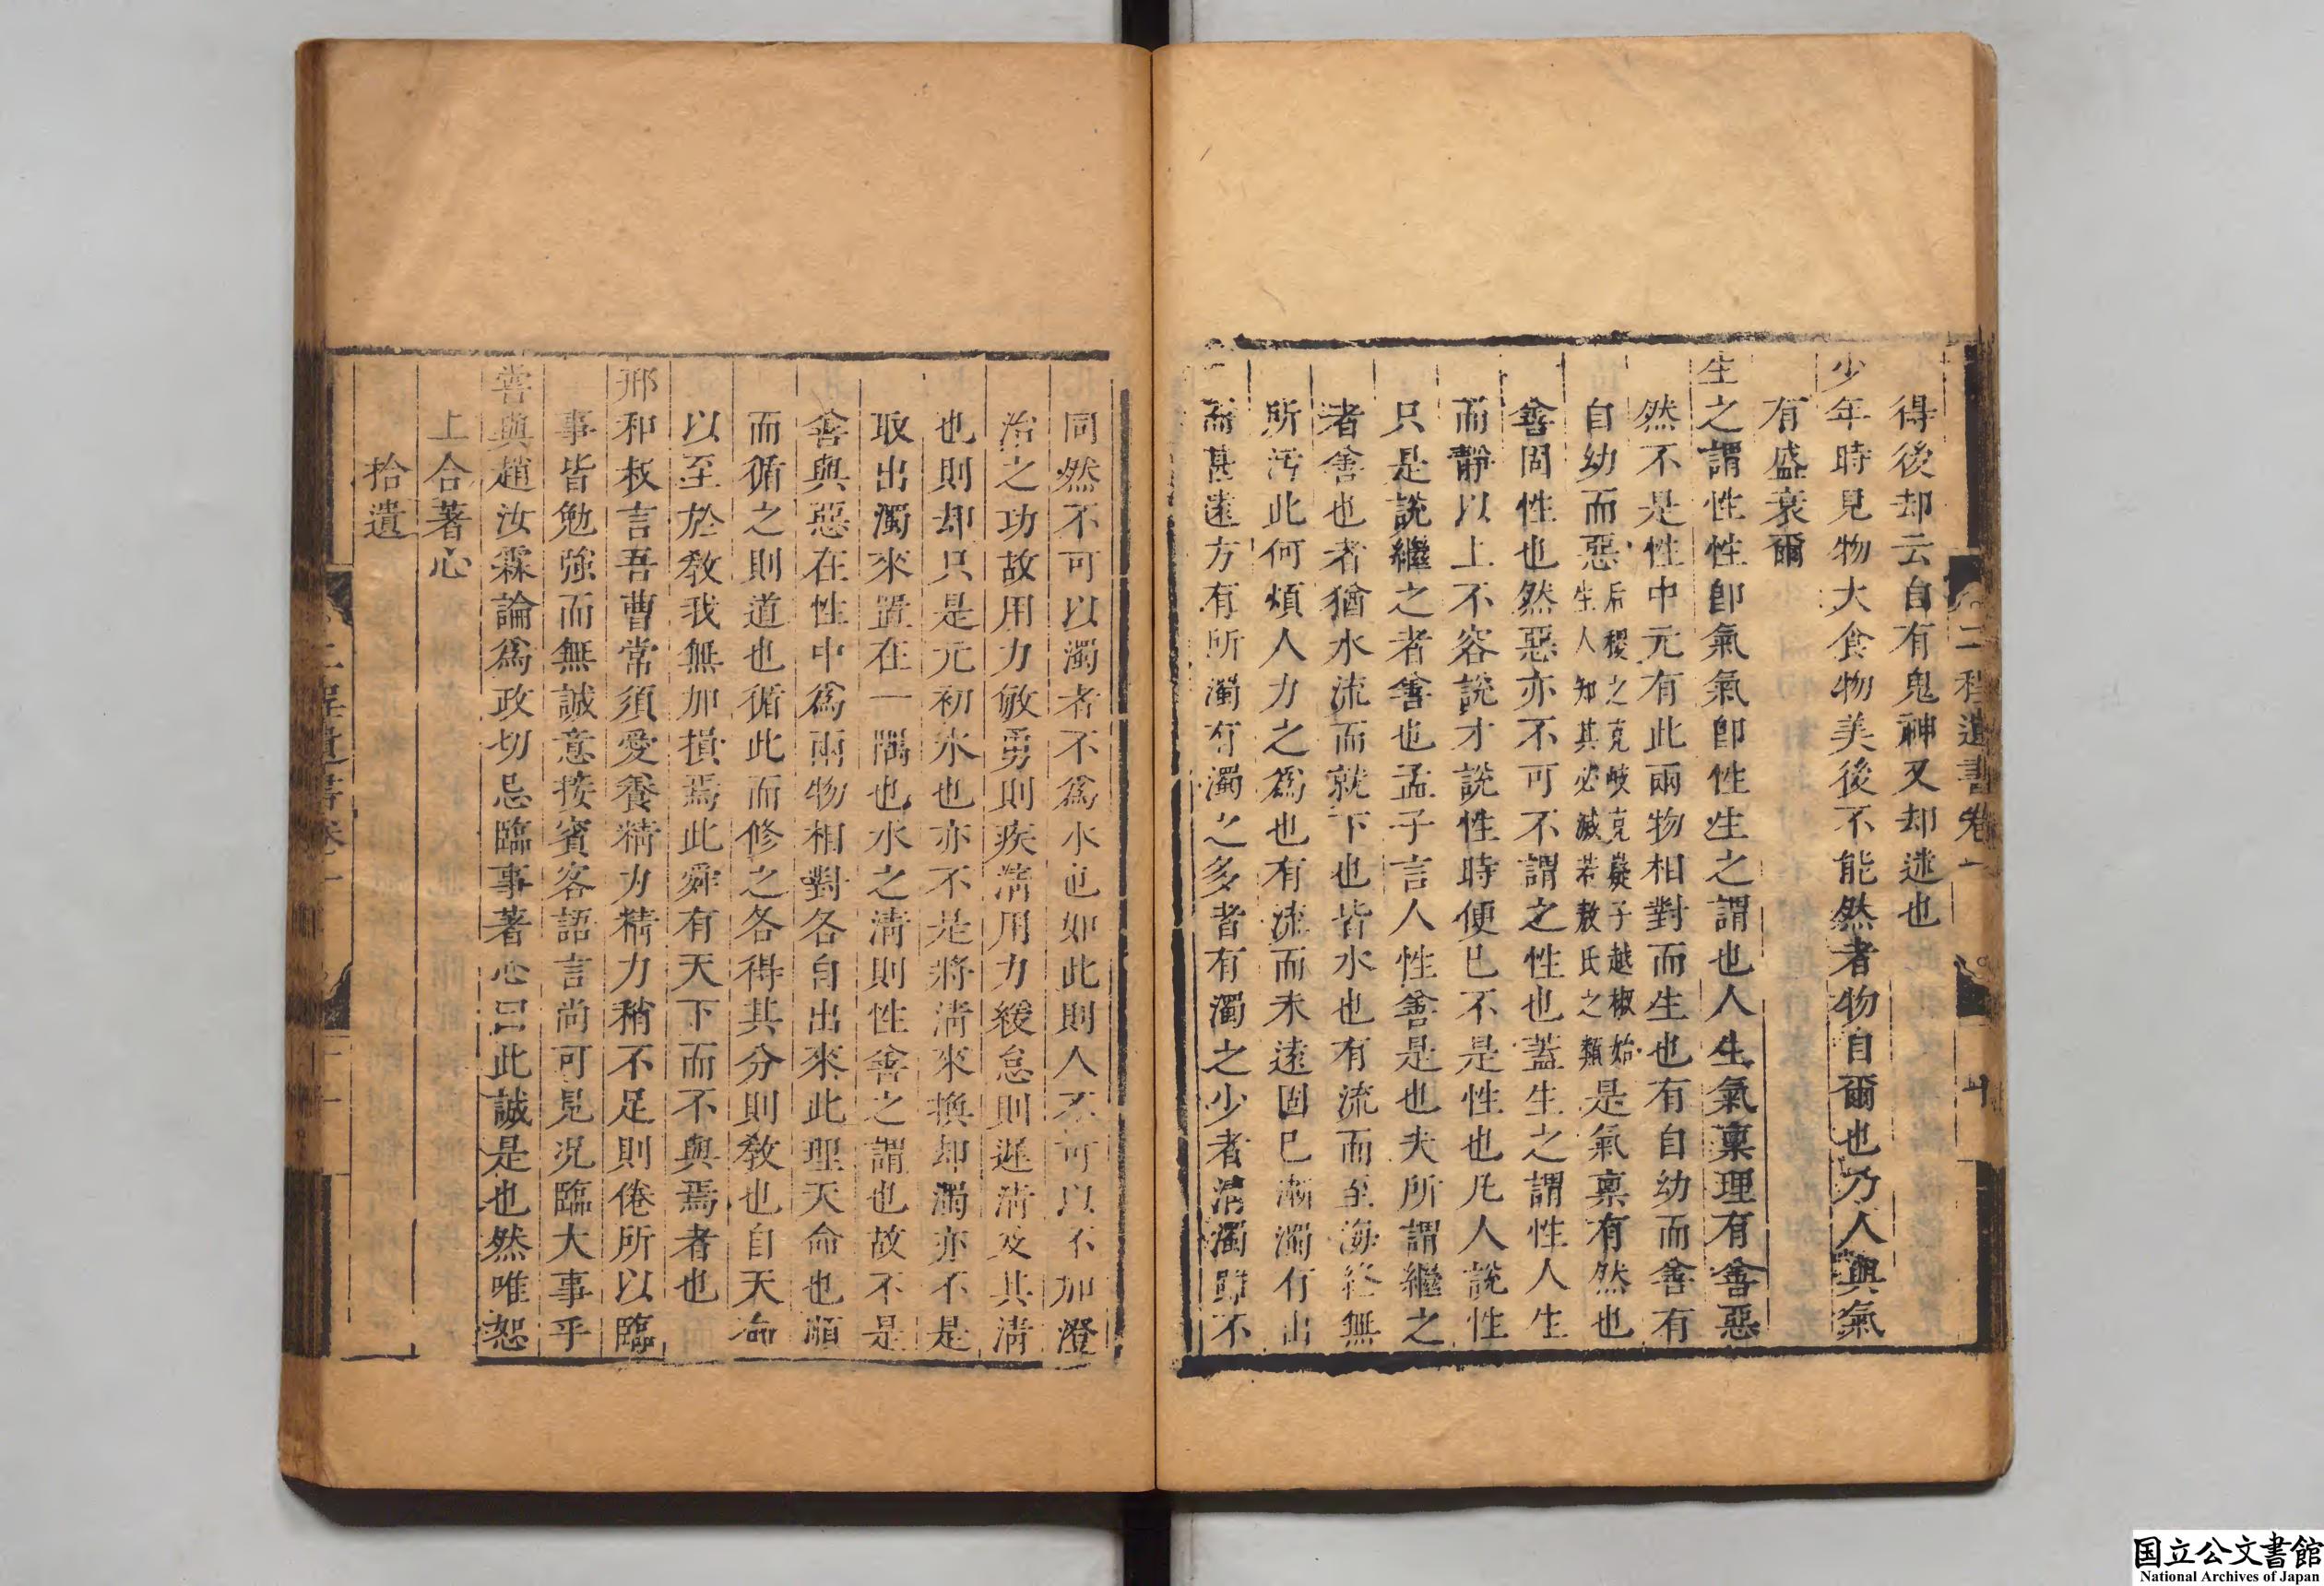 二程遺書卷一
十
得後却云自有鬼神又却迷也
少年時見物大食物美後不能然者物自爾也乃人與氣
有盛衰爾
生之謂性性卽氣氣卽性生之謂也人生氣稟理有善惡
然不是性中元有此兩物相對而生也有自幼而善有
自幼而惡后稷之克岐克嶷子越椒始生人知其必滅若敖氏之類是氣稟有然也
善固性也然惡亦不可不謂之性也蓋生之謂性人生
而靜以上不容說才說性時便已不是性也凡人說性
只是說繼之者善也孟子言人性善是也夫所謂繼之
者善也者猶水流而就下也皆水也有流而至海終無
所汚此何煩人力之爲也有流而未遠固已漸濁有出
而甚遠方有所濁有濁之多者有濁之少者清濁雖不
同然不可以濁者不爲水也如此則人不可以不加澄
治之功故用力敏勇則疾清用力緩怠則遲清及其清
也則却只是元初水也亦不是將清來換却濁亦不是
取出濁來置在一隅也水之清則性善之謂也故不是
善與惡在性中爲兩物相對各自出來此理天命也順
而循之則道也循此而修之各得其分則敎也自天命
以至於敎我無加損焉此舜有天下而不與焉者也
邢和叔言吾曹常須愛養精力精力稍不足則倦所以臨
事皆勉強而無誠意接賓客語言尚可見況臨大事乎
嘗與趙汝霖論爲政切忌臨事著心曰此誠是也然唯恕
上合著心
拾遺
二程遺書卷一
国立公文書館
National Archives of Japan